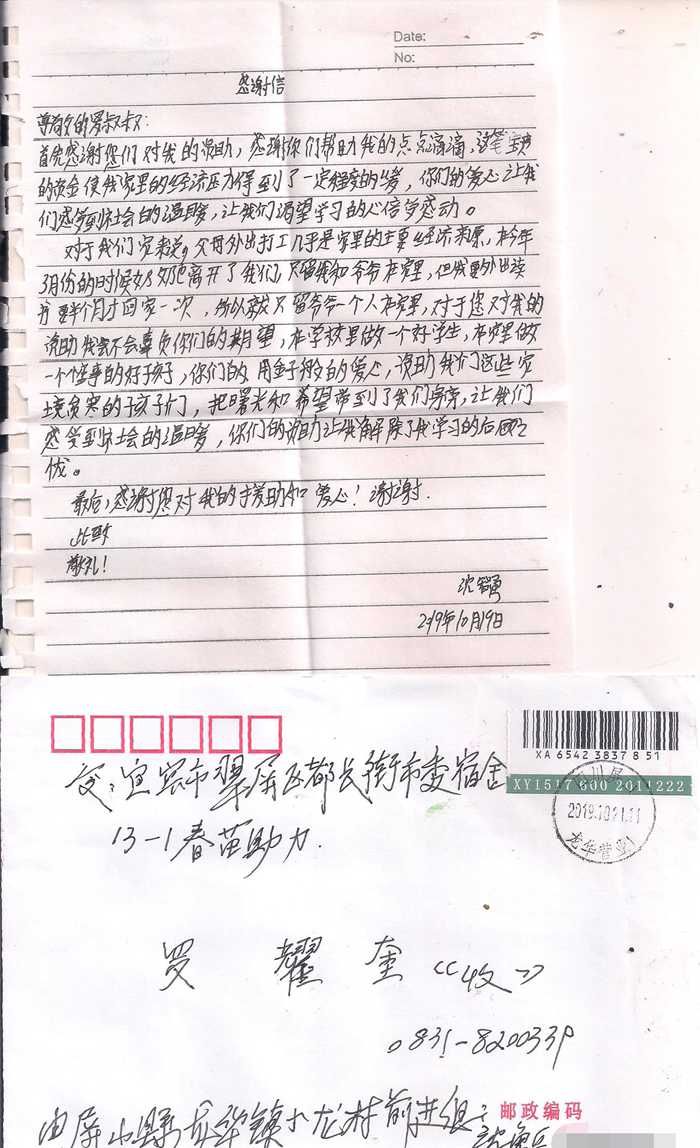 Date:
No:
感谢信
尊敬的罗叔叔:
首先感谢您们对我的资助,感谢你们帮助我的点点滴滴,这笔宝贵
的资金使我家里的经济压力得到了一定程度的缓,你们的爱心让我
们感受到社会的温暖,让我们渴望学习的心倍受感动。
对于我们家来说,父母外出打工几乎是家里的主要经济来源,在今年
3月份的时候奶奶她离开了我们,只留我和爷爷在家里,但我要外出读
书要半个月才回家一次,所以就只留爷爷一个人在家里,对于您对我的
资助我会不会辜负你们的期望,在学校里做一个好学生,在家里做
一个懂事的好孩子,你们的用金子般的爱心,资助我们这些家
境贫寒的孩子们,把曙光和希望带到了我们身旁,让我们
感受到社会的温暖,你们的资助让我解除了我学习的后顾之
忧。
最后,感谢您对我的援助和爱心!谢谢.
此致
敬礼!
2019年10月19日
XA 6542 3837 8 51
XY1517 600 2011222
2019.10.21.11
龙华营
交:宜宾市翠屏区都长街市委宿舍
13-1春苗助力.
罗耀奎《收》
0831-8200339
邮政编码
由屏山县龙华镇小龙村前进组